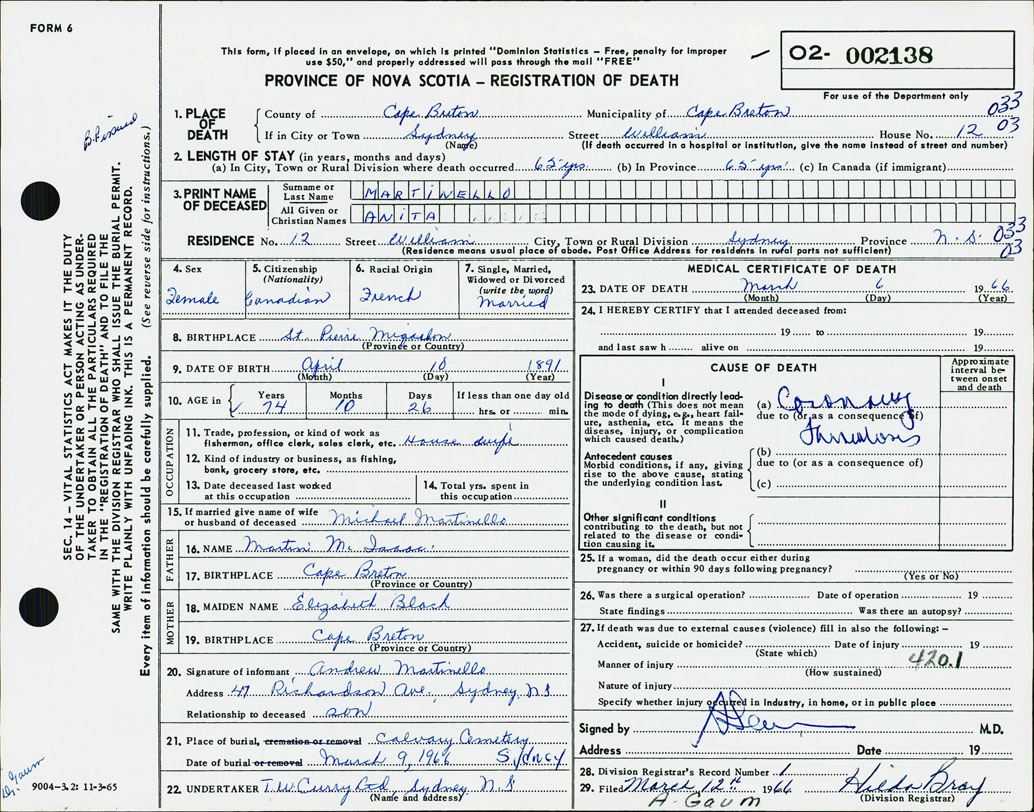 FORM 6
This form, if placed in an envelope, on which is printed "Dominion Statistics – Free, penalty for improper
use $50," and properly addressed will pass through the mail "FREE"
O2- 002138
For use of the Department only
PROVINCE OF NOVA SCOTIA – REGISTRATION OF DEATH
033
03
1. PLACE OF DEATH
County of Cape Breton Municipality of Cape Breton
If in City or Town Sydney Street William House No. 12
(Name) (If death occurred in a hospital or institution, give the name instead of street and number)
2. LENGTH OF STAY (in years, months and days)
(a) In City, Town or Rural Division where death occurred 65 yrs. (b) In Province 65 yrs. (c) In Canada (if immigrant)
3. PRINT NAME OF DECEASED
Surname or Last Name MARTINELLO
All Given or Christian Names ANITA
RESIDENCE No. 12 Street William City, Town or Rural Division Sydney Province N.S. 033
03
(Residence means usual place of abode. Post Office Address for residents in rural parts not sufficient)
4. Sex
Female
5. Citizenship
(Nationality)
Canadian
6. Racial Origin
French
7. Single, Married,
Widowed or Divorced
(write the word)
Married
8. BIRTHPLACE St. Pierre Miquelon
(Province or Country)
9. DATE OF BIRTH April 10 1891
(Month) (Day) (Year)
10. AGE in Years Months Days If less than one day old
74 10 26 hrs. or min.
OCCUPATION
11. Trade, profession, or kind of work as
fisherman, office clerk, sales clerk, etc. House wife
12. Kind of industry or business, as fishing,
bank, grocery store, etc.
13. Date deceased last worked
at this occupation
14. Total yrs. spent in
this occupation
15. If married give name of wife
or husband of deceased Michael Martinello
FATHER
16. NAME Martin Mc Isaac
17. BIRTHPLACE Cape Breton
(Province or Country)
MOTHER
18. MAIDEN NAME Elizabeth Black
19. BIRTHPLACE Cape Breton
(Province or Country)
20. Signature of informant Andrew Martinello
Address 47 Richardson Ave. Sydney N.S
Relationship to deceased son
21. Place of burial, cremation or removal Calvary Cemetery
Date of burial or removal March 9, 1966 Sydney
22. UNDERTAKER T.W. Curry Ltd, Sydney N.S
(Name and address)
MEDICAL CERTIFICATE OF DEATH
23. DATE OF DEATH March 6 1966
(Month) (Day) (Year)
24. I HEREBY CERTIFY that I attended deceased from:
19 to 19
and last saw h alive on 19
CAUSE OF DEATH
Approximate
interval be-
tween onset
and death
I
Disease or condition directly lead-
ing to death (This does not mean
the mode of dying, e.g., heart fail-
ure, asthenia, etc. It means the
disease, injury, or complication
which caused death.)
(a) Coronary
due to (or as a consequence of)
Thrombosis
Antecedent causes
Morbid conditions, if any, giving
rise to the above cause, stating
the underlying condition last.
(b)
due to (or as a consequence of)
(c)
II
Other significant conditions
contributing to the death, but not
related to the disease or condi-
tion causing it.
25. If a woman, did the death occur either during
pregnancy or within 90 days following pregnancy?
(Yes or No)
26. Was there a surgical operation? Date of operation 19
State findings Was there an autopsy?
27. If death was due to external causes (violence) fill in also the following: –
Accident, suicide or homicide? Date of injury 19
(State which)
420.1
Manner of injury
(How sustained)
Nature of injury
Specify whether injury occurred in Industry, in home, or in public place
Signed by M.D.
Address Date 19
28. Division Registrar's Record Number 1
29. Filed March 12th 1966 Hilda Bray
(Division Registrar)
A. Gaum
SEC. 14 – VITAL STATISTICS ACT MAKES IT THE DUTY
OF THE UNDERTAKER OR PERSON ACTING AS UNDER-
TAKER TO OBTAIN ALL THE PARTICULARS REQUIRED
IN THE "REGISTRATION OF DEATH" AND TO FILE THE
SAME WITH THE DIVISION REGISTRAR WHO SHALL ISSUE THE BURIAL PERMIT.
WRITE PLAINLY WITH UNFADING INK. THIS IS A PERMANENT RECORD.
Every item of information should be carefully supplied. (See reverse side for instructions.)
Dr. Gaum
9004-3.2: 11-3-65